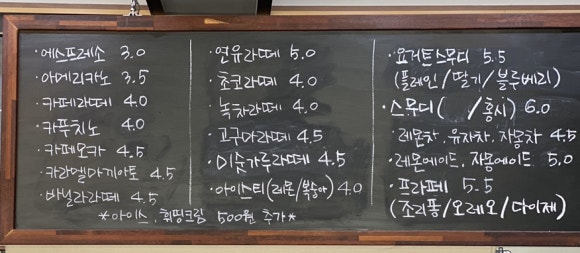 ·에스프레소 3.0
·아메리카노 3.5
·카페라떼 4.0
·카푸치노 4.0
·카페모카 4.5
·카라멜마끼아또 4.5
·바닐라라떼 4.5
·연유라떼 5.0
·초코라떼 4.0
·녹차라떼 4.0
·고구마라떼 4.5
·미숫가루라떼 4.5
·아이스티(레몬/복숭아) 4.0
·요거트스무디 5.5
(플레인/딸기/블루베리)
·스무디( /홍시) 6.0
·레몬차.유자차.자몽차 4.5
·레몬에이드.자몽에이드. 5.0
·프라페 5.5
(조리퐁/오레오/다이제)
*아이스.휘핑크림 500원 추가*